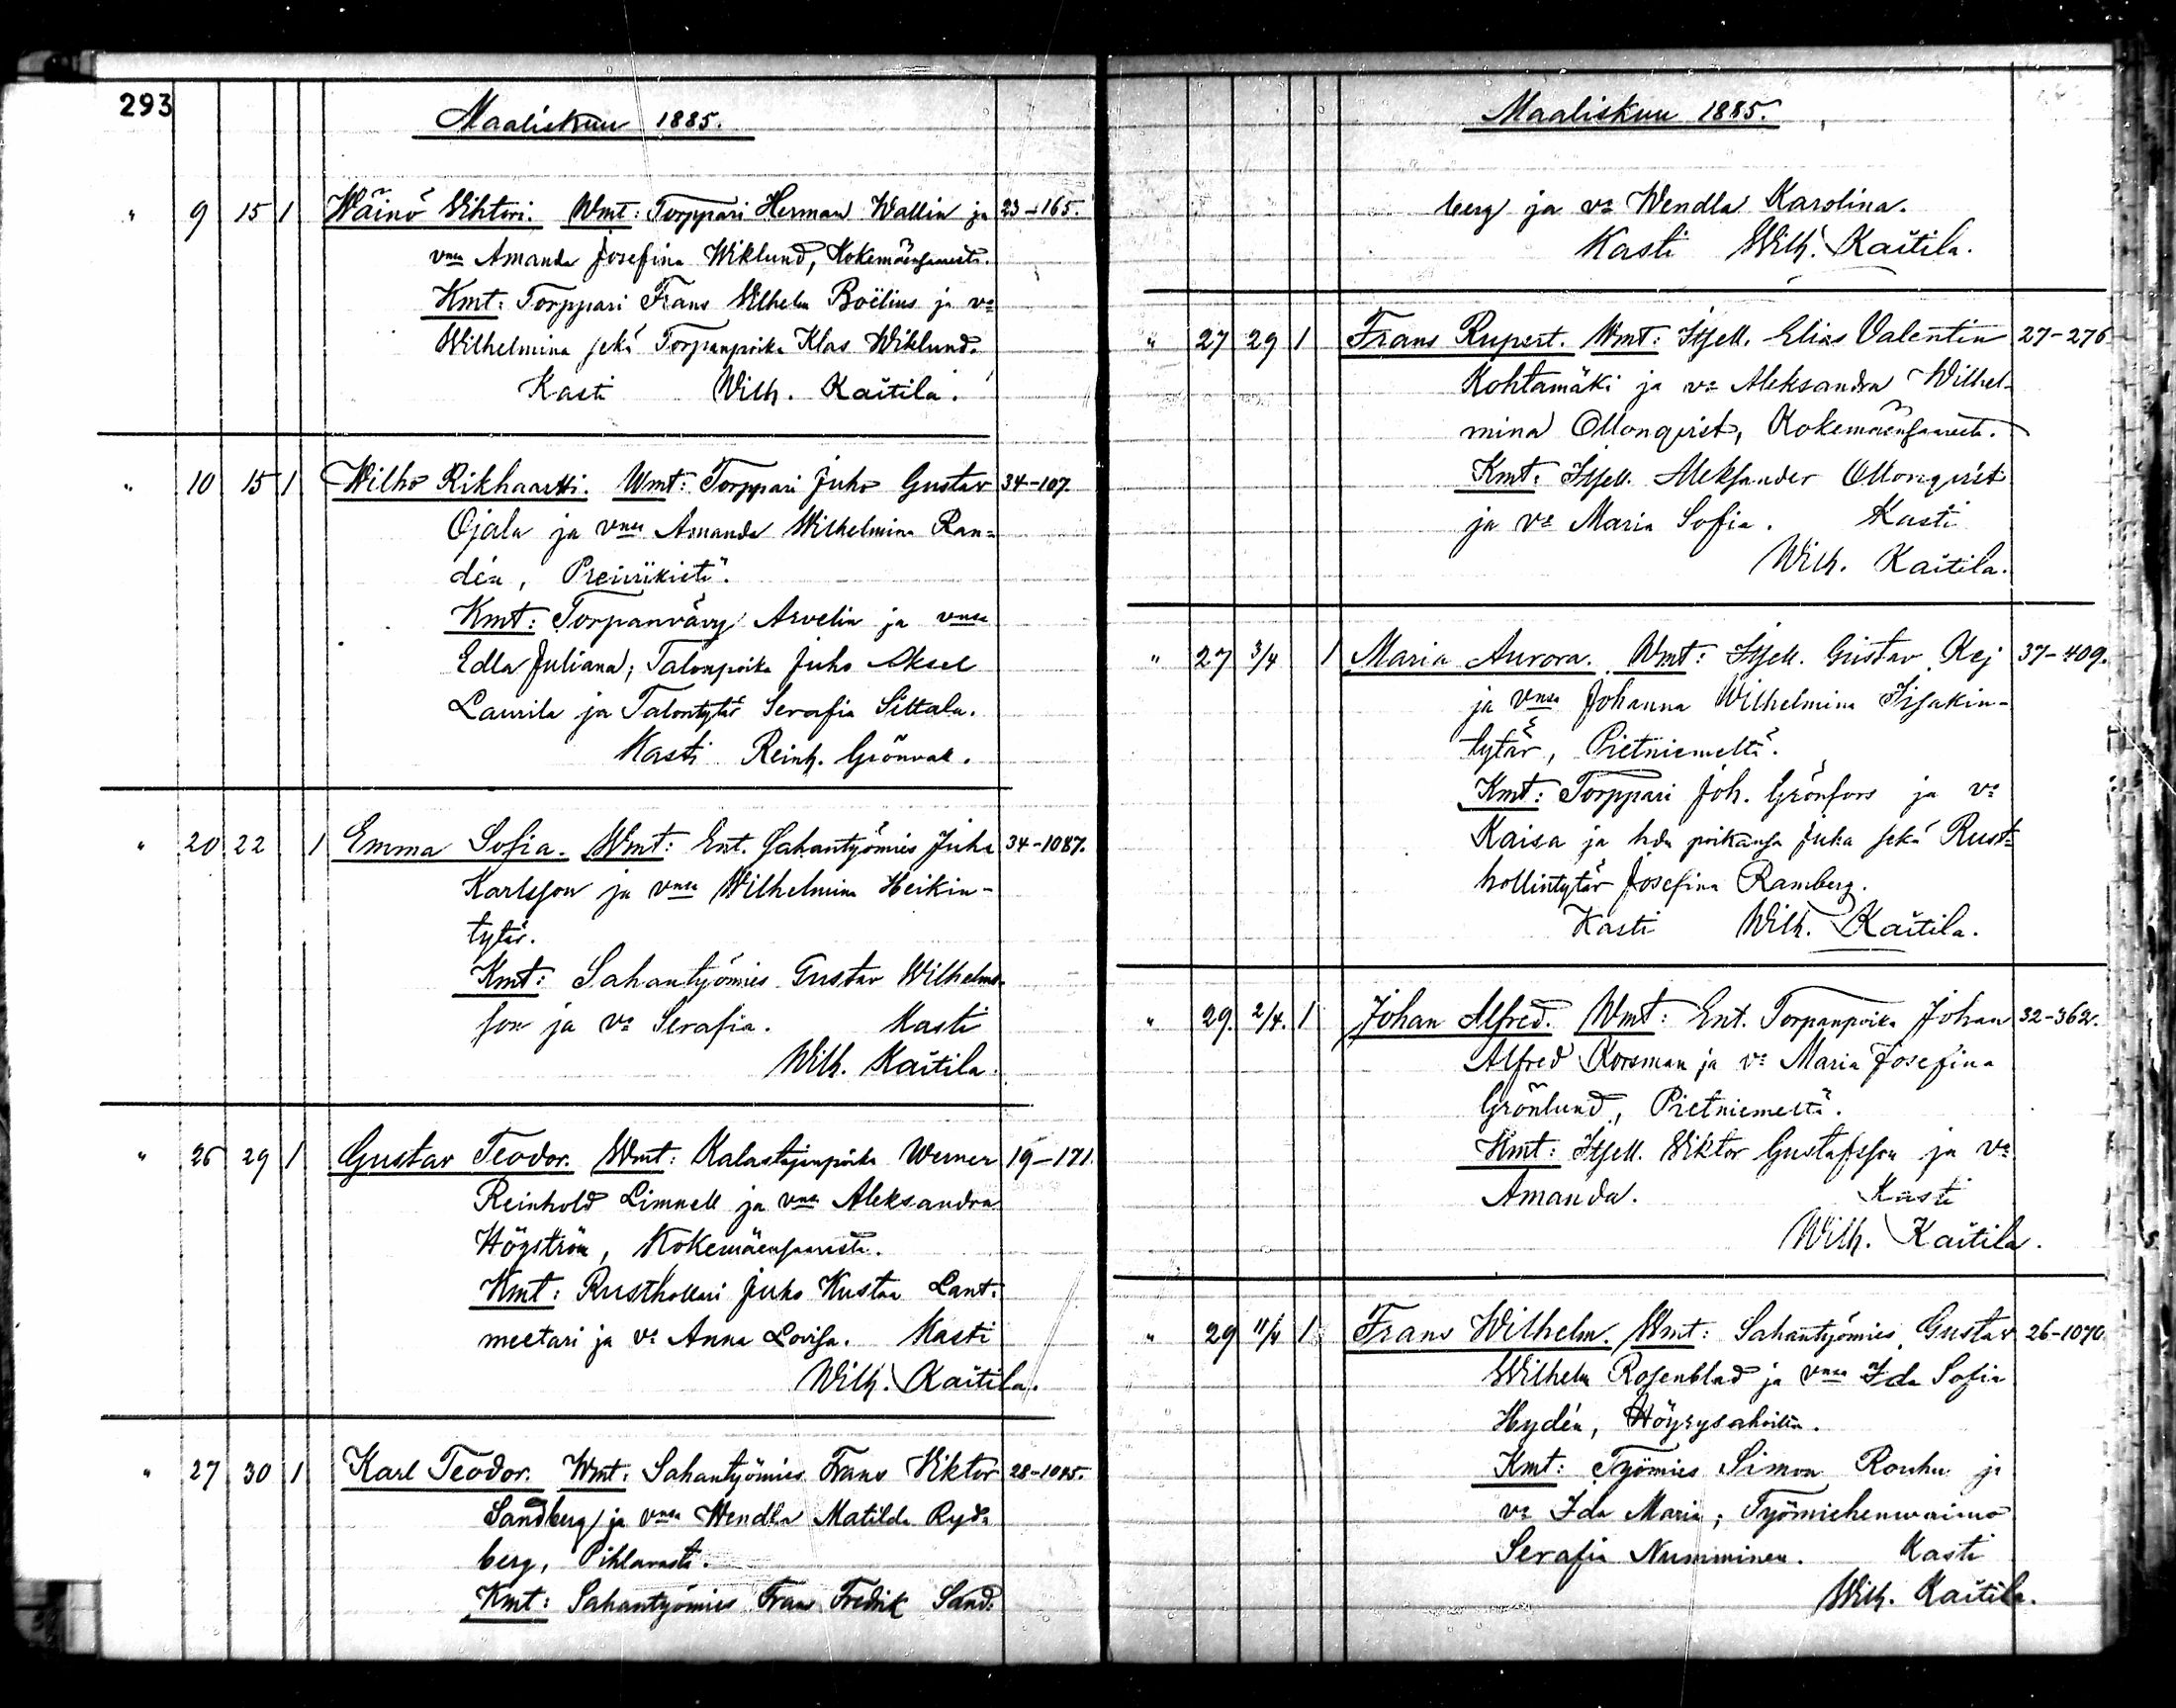 293
Maaliskuu 1885.
" 9 15 1 Wäinö Wihtori. Wmt: Torppari Herman Wallin ja 23-165.
vmsa Amanda Josefina Wiklund, Kokemäensaaresta.
Kmt: Torppari Frans Wilhelm Boëlius ja va
Wilhelmina sekä Torpanpoika Klas Wiklund.
Kasti Wilh. Kaitila.
" 10 15 1 Wilho Rikhartti. Wmt: Torppari Juho Gustav 34-107.
Ojala ja vmsa Amanda Wilhelmina Ran-
dén, Preiviikistä.
Kmt: Torpanvävy Arvelin ja vmsa
Edla Juliana; Talonpoika Juho Aksel
Laurila ja Talontytär Serafia Sittala.
Kasti Reinh. Grönvall.
" 20 22 1 Emma Sofia. Wmt: Ent. Sahantyömies Juha 34-1087.
Karlsson ja vmsa Wilhelmina Heikin-
tytär.
Kmt: Sahantyömies Gustav Wilhelms-
son ja va Serafia. Kasti
Wilh. Kaitila.
" 26 29 1 Gustav Teodor. Wmt: Kalastajanpoika Werner 19-171.
Reinhold Limnell ja vmsa Aleksandra
Högström, Kokemäensaaresta.
Kmt: Rusthollari Juho Kustaa Lant-
meetari ja va Anna Lovisa. Kasti
Wilh. Kaitila.
" 27 30 1 Karl Teodor. Wmt: Sahantyömies Frans Viktor 28-1085.
Sandberg ja vmsa Wendla Matilda Ryd-
berg, Pihlavasta.
Kmt: Sahantyömies Frans Fredrik Sand-
Maaliskuu 1885.
berg ja va Wendla Karolina.
Kasti Wilh. Kaitila.
" 27 29 1 Frans Rupert. Wmt: Itsell. Elias Valentin 27-276
Kohtamäki ja va Aleksandra Wilhel-
mina Ollonqvist, Kokemäensaaresta.
Kmt: Itsell. Aleksander Ollonqvist
ja va Maria Sofia. Kasti
Wilh. Kaitila.
" 27 3/4 1 Maria Aurora. Wmt: Itsell. Gustav Kej 37-409.
ja vmsa Johanna Wilhelmina Iisakin-
tytär, Pietniemeltä.
Kmt: Torppari Joh. Grönfors ja va
Kaisa ja hdn poikansa Juha sekä Rust-
hollintytär Josefina Ramberg.
Kasti Wilh. Kaitila.
" 29. 2/4. 1 Johan Alfred. Wmt: Ent. Torpanpoika Johan 32-362.
Alfred Korsman ja va Maria Josefina
Grönlund, Pietniemeltä.
Kmt: Itsell. Viktor Gustafsson ja va
Amanda. Kasti
Wilh. Kaitila.
" 29 11/4 1 Frans Wilhelm. Wmt: Sahantyömies Gustav 26-1070.
Wilhelm Rosenblad ja vmsa Ida Sofia
Hydén, Höyrysahoilta.
Kmt: Työmies Simon Rouhu ja
va Ida Maria; Työmiehenwaimo
Serafia Numminen. Kasti
Wilh. Kaitila.